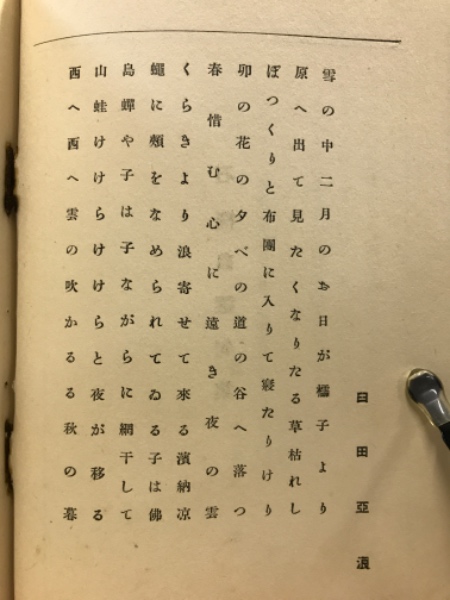 臼田亞浪
雪の中二月のお日が櫺子より
原へ出て見たくなりたる草枯れし
ぽつくりと布團に入りて寢たりけり
卯の花の夕べの道の谷へ落つ
春惜む心に遠き夜の雲
くらきより浪寄せて來る濱納凉
蠅に頰をなめられてゐる子は佛
島蟬や子は子ながらに網干して
山蛙けけらけけらと夜が移る
西へ西へ雲の吹かるる秋の暮